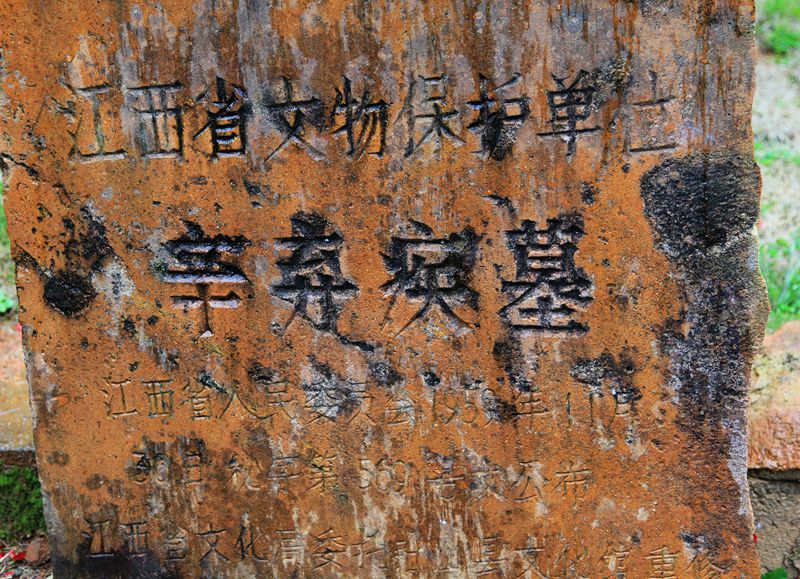 江西省文物保护单位
辛弃疾墓
江西省人民委员会1959年11月
30日秘字第569号文公布
江西省文化局委托铅山县文化馆重修